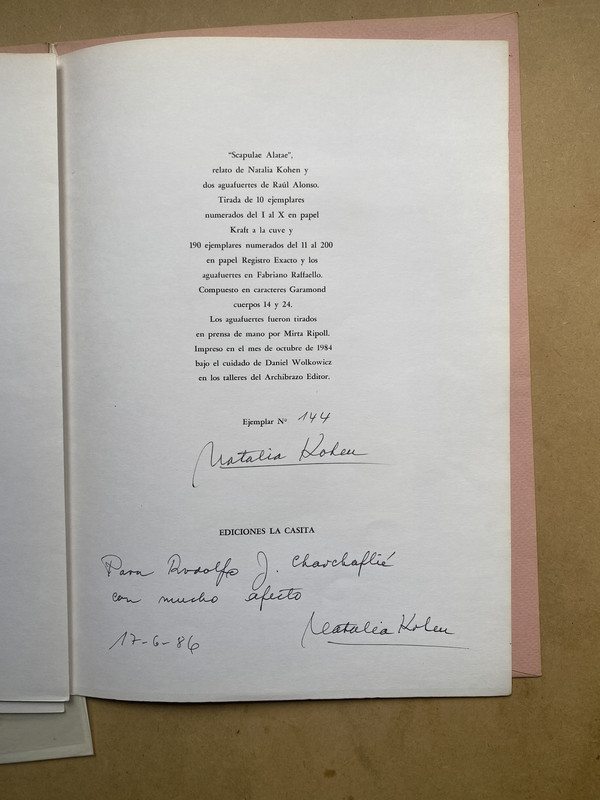 "Scapulae Alatae",
relato de Natalia Kohen y
dos aguafuertes de Raúl Alonso.
Tirada de 10 ejemplares
numerados del I al X en papel
Kraft a la cuve y
190 ejemplares numerados del 11 al 200
en papel Registro Exacto y los
aguafuertes en Fabriano Raffaello.
Compuesto en caracteres Garamond
cuerpos 14 y 24.
Los aguafuertes fueron tirados
en prensa de mano por Mirta Ripoll.
Impreso en el mes de octubre de 1984
bajo el cuidado de Daniel Wolkowicz
en los talleres del Archibrazo Editor.
Ejemplar Nº 144
Natalia Kohen
EDICIONES LA CASITA
Para Rodolfo J. Charchaflié
con mucho afecto
Natalia Kohen
17-6-86